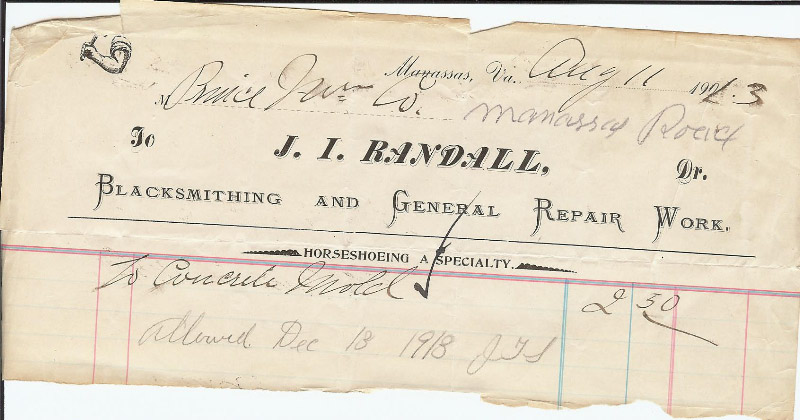 Manassas, Va. Aug 11 191 3
M Prince Wm Co. Manassas Road
To J. I. RANDALL, Dr.
BLACKSMITHING AND GENERAL REPAIR WORK.
HORSESHOEING A SPECIALTY.
To Concrete Mold 2 50
allowed Dec 13 1913